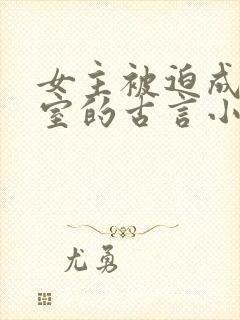 女主被迫成
室的古言小
尤勇